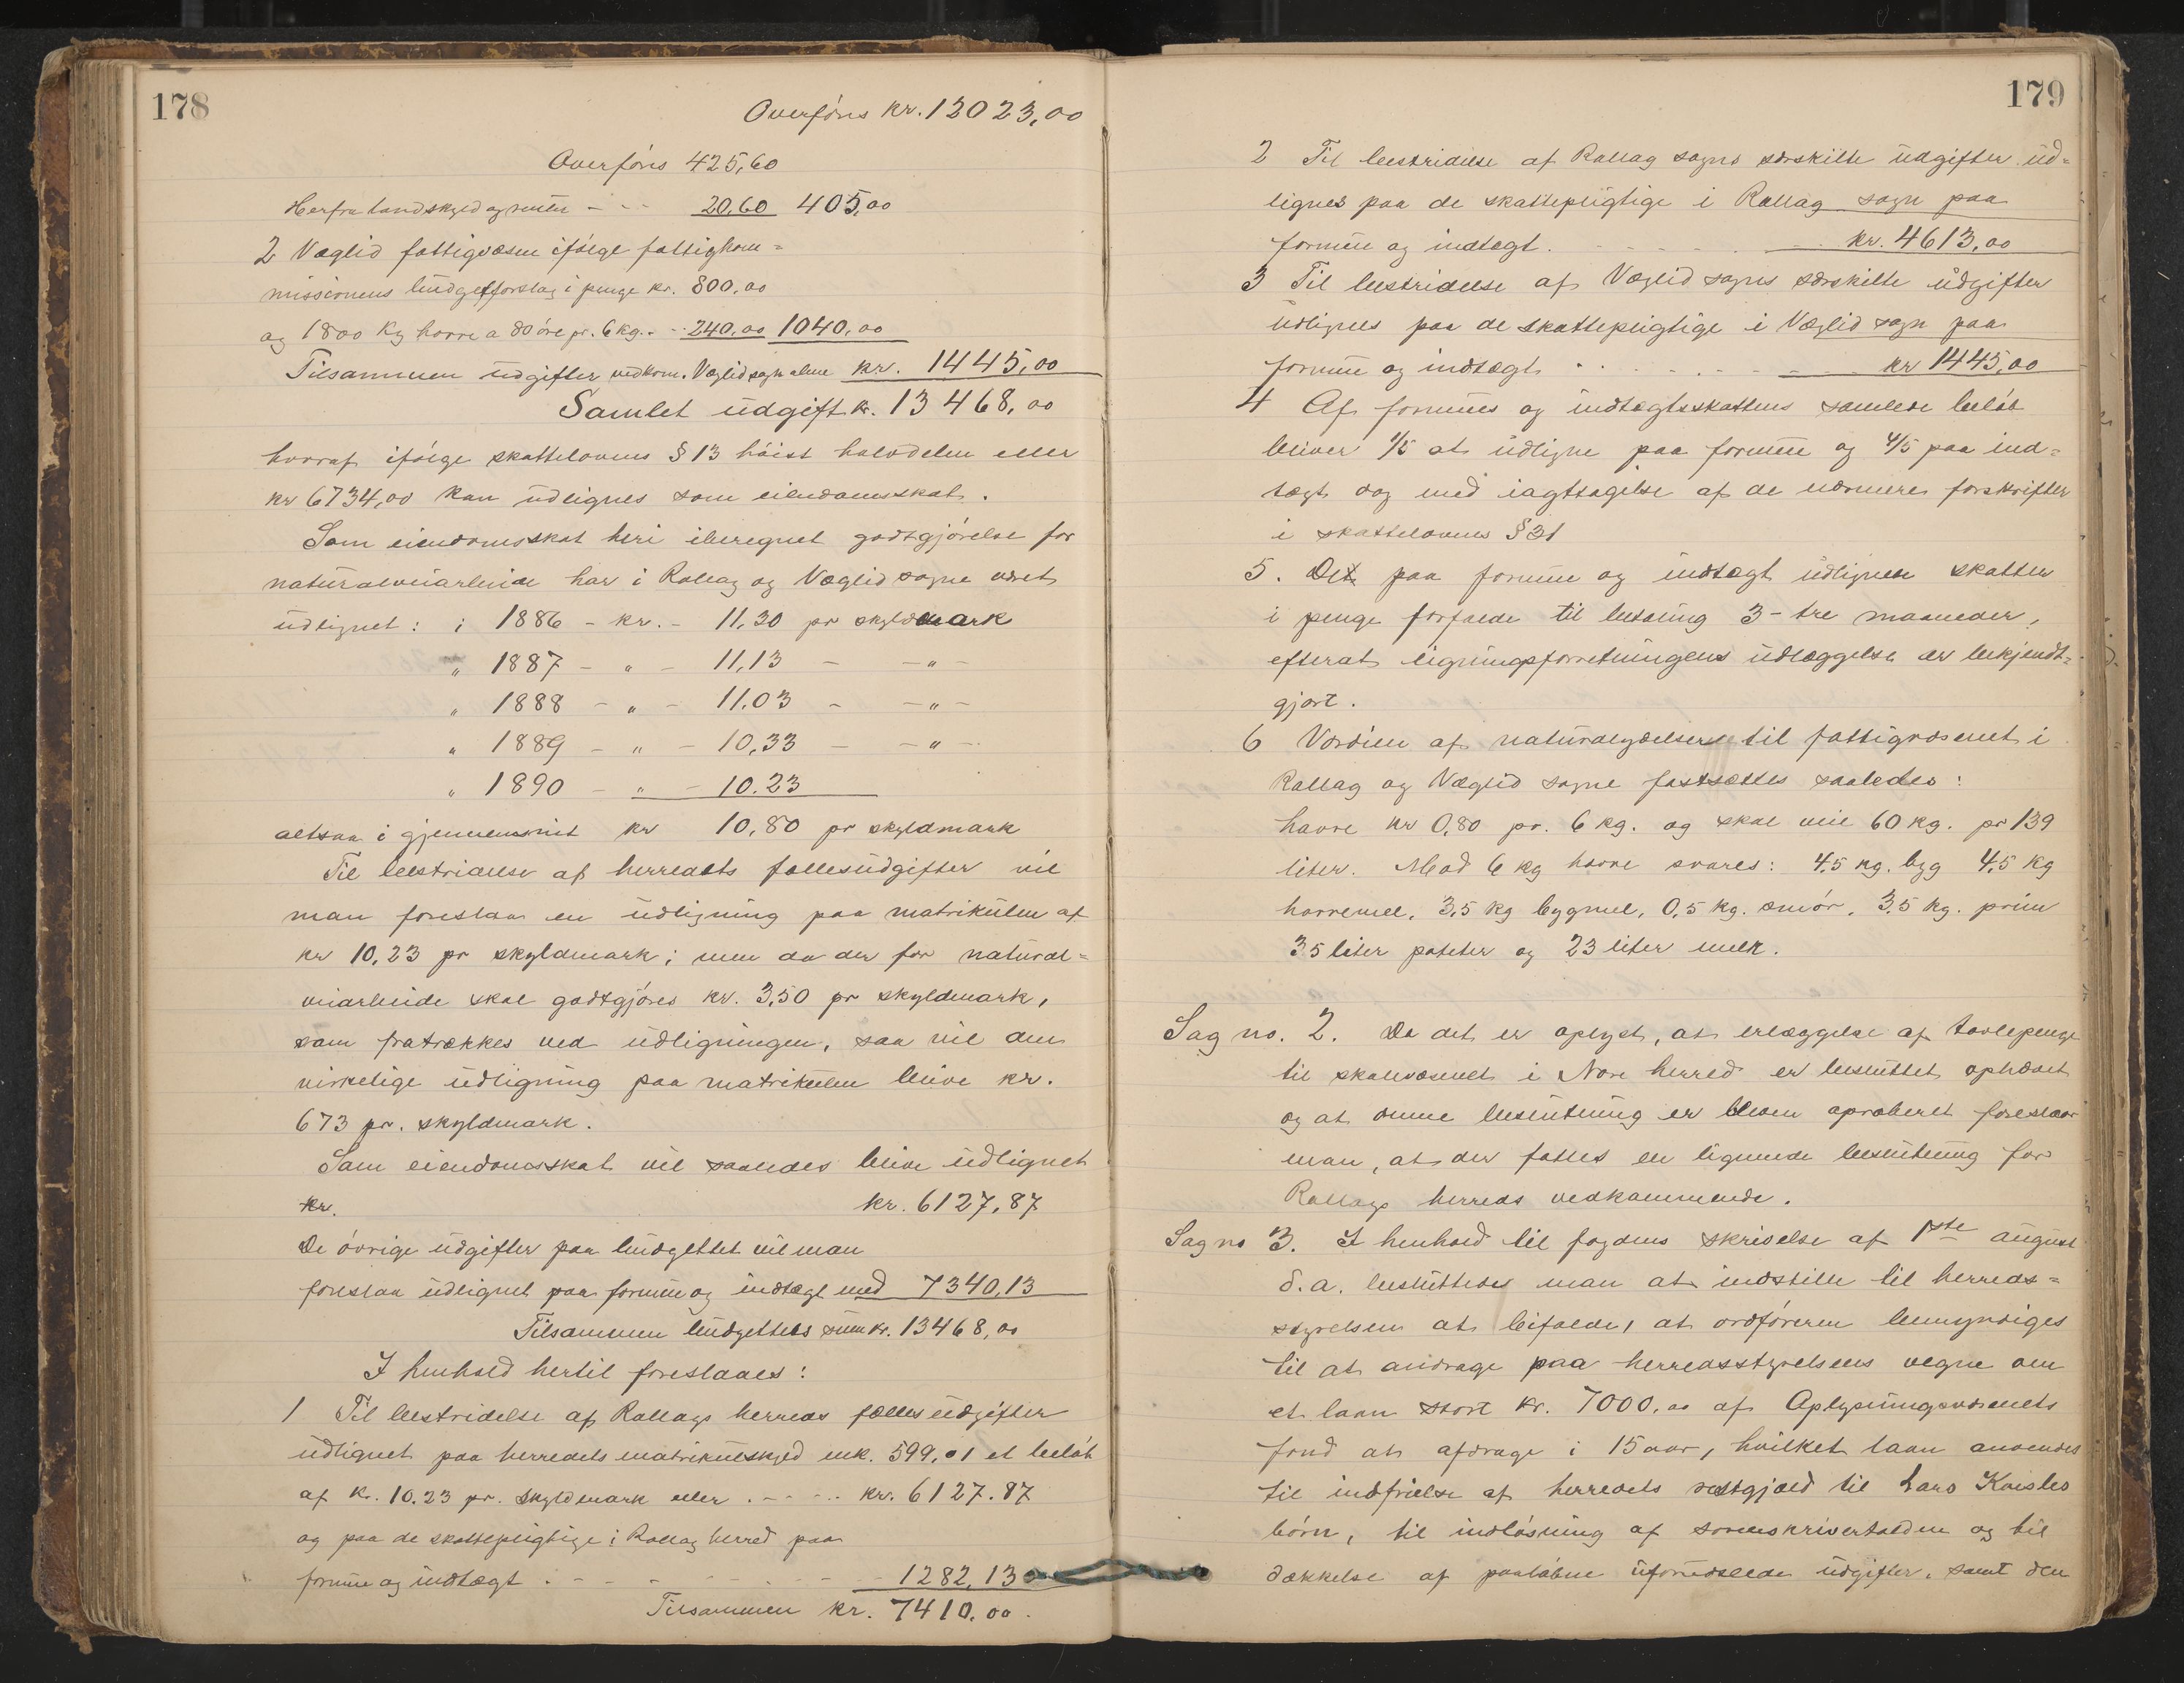 178
Overføres kr. 12023,00
Overføres 425,60
Herfra landskyld og renter - - - 20,60 405,00
2 Væglid fattigvæsen ifølge fattigkom=
missionens budgetforslag i penge kr. 800,00
og 1800 kg havre a 80 øre pr. 6 kg. - - 240,00 1040,00
Tilsammen udgifter vedkom. Væglid sogn alene kr. 1445,00
Samlet udgift kr. 13468,00
hvoraf ifølge skattelovens § 13 høist halvdelen eller
kr 6734,00 kan udlignes som eiendomsskat.
Som eiendomsskat heri iberegnet godtgjørelse for
naturalveiarbeide har i Rollag og Væglid sogne været
udlignet: i 1886 - kr. - 11,30 pr skyldmark
" 1887 - " - 11,13 - - " -
" 1888 - " - 11.03 - - " -
" 1889 - " - 10,33 - - " -
" 1890 - " - 10.23
altsaa i gjennemsnit kr 10,80 pr skyldmark
Til bestridelse af herredets fællesudgifter vil
man foreslaa en udligning paa matrikulen af
kr 10,23 pr skyldmark; men da der for natural=
veiarbeide skal godtgjøres kr. 3,50 pr skyldmark,
som fratrækkes ved udligningen, saa vil den
virkelige udligning paa matrikulen blive kr.
673 pr. skyldmark.
Som eiendomsskat vil saaledes blive udlignet
kr. kr. 6127,87
De øvrige udgifter paa budgettet vil man
foreslaa udlignet paa formue og indtægt med 7340,13
Tilsammen budgettets sum kr. 13468,00
I henhold hertil foreslaaes:
1 Til bestridelse af Rollags herreds fælles udgifter
udlignet paa herredets matrikulskyld mk. 599,01 et beløb
af kr. 10.23 pr. skyldmark eller . - - - . kr. 6127.87
og paa de skattepligtige i Rollag herred paa
formue og indtægt . - - - - - - - 1282,13
Tilsammen kr. 7410,00.
179
2 Til bestridelse af Rollag sogns særskilte udgifter ud=
lignes paa de skattepligtige i Rollag sogn paa
formue og indtægt. - - - - - kr. 4613,00
3 Til bestridelse af Væglid sogns særskilte udgifter
udlignes paa de skattepligtige i Væglid sogn paa
formue og indtægt . . . . . - - - kr 1445,00
4 Af formues og indtægtsskattens samlede beløb
bliver 1/5 at udligne paa formue og 4/5 paa ind=
tægt dog med iagttagelse af de nærmere forskrifter
i skattelovens § 21
5. Det paa formue og indtægt udlignede skatter
i penge forfalde til betaling 3 - tre maaneder,
efterat ligningsforretningens udlæggelse er bekjendt=
gjort.
6 Værdien af naturalydelserne til fattigvæsenet i
Rollag og Væglid sogne fastsættes saaledes:
havre kr 0,80 pr. 6 kg. og skal veie 60 kg. pr 139
liter. Mod 6 kg havre svares: 4,5 kg. byg 4,5 kg
havremel, 3,5 kg bygmel, 0,5 kg. smør, 3,5 kg. prim
35 liter poteter og 23 liter melk.
Sag no. 2. Da det er oplyst, at erlæggelse af tavlepenge
til skolevæsenet i Nore herred er besluttet ophævet
og at denne beslutning er bleven aproberet foreslaar
man, at der fattes en lignende beslutning for
Rollags herreds vedkommende.
Sag no 3. I henhold til fogdens skrivelse af 1ste august
d.a. besluttedes man at indstille til herreds=
styrelsen at bifalde, at ordføreren bemyndiges
til at andrage paa herredsstyrelsens vegne om
et laan stort kr. 7000,00 af Oplysningsvæsenets
fond at afdrage i 15 aar, hvilket laan anvendes
til indfrielse af herredets restgjæld til Lars
børn, til indløsning af sorenskrivertolden og til
dækkelse af paaløbne uforudseede udgifter, samt den